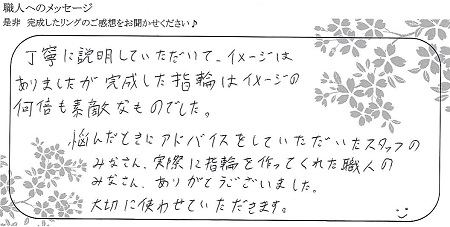 職人へのメッセージ
是非 完成したリングのご感想をお聞かせください♪
丁寧に説明していただいて、イメージは
ありましたが完成した指輪はイメージの
何倍も素敵なものでした。
悩んだときにアドバイスをしていただいたスタッフの
みなさん、実際に指輪を作ってくれた職人の
みなさん、ありがとうございました。
大切に使わせていただきます。